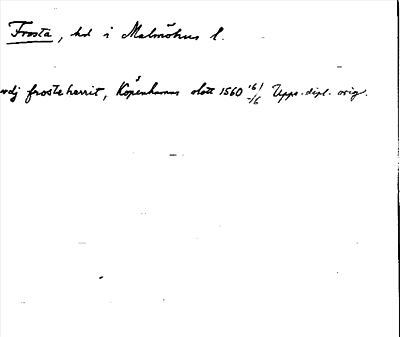 Frosta, hd i Malmöhus l.
wdj frosteherrit, Köpenhamns slott 1560 16/6 Upps. dipl. orig.